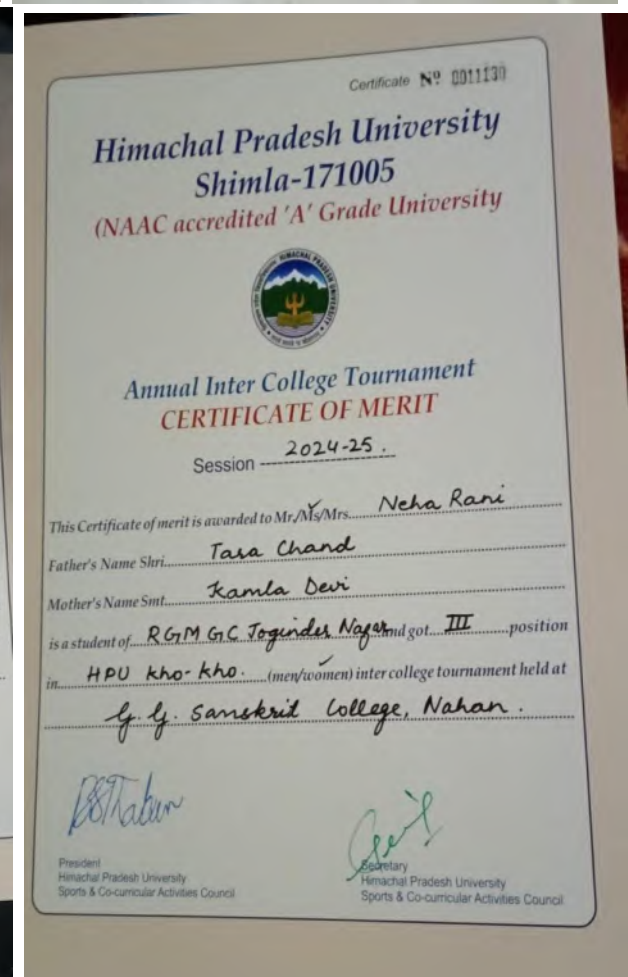 Certificate Nº 0011130
Himachal Pradesh University
Shimla-171005
(NAAC accredited 'A' Grade University
HIMACHAL PRADESH UNIVERSITY
Annual Inter College Tournament
CERTIFICATE OF MERIT
Session 2024-25.
This Certificate of merit is awarded to Mr./Ms/Mrs. Neha Rani
Father's Name Shri. Tara Chand
Mother's Name Smt. Kamla Devi
is a student of RGM GC Joginder Nagar and got III position
in HPU Kho-Kho. (men/women) inter college tournament held at
G. G. Sanskrit College, Nahan.
President
Himachal Pradesh University
Sports & Co-curricular Activities Council
Secretary
Himachal Pradesh University
Sports & Co-curricular Activities Council